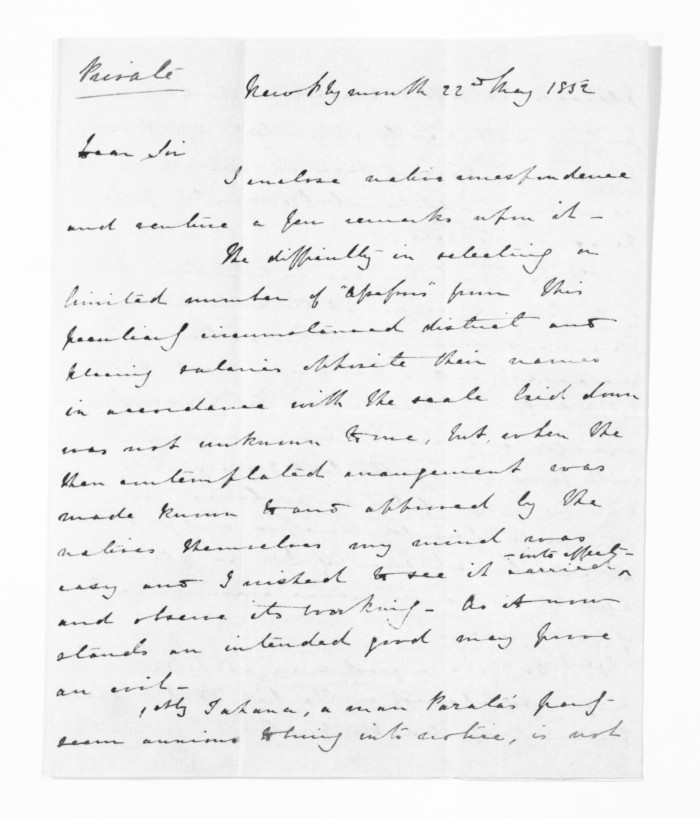 Private
New Plymouth 22nd May 1852
Dear Sir
I enclose native correspondence
and venture a few remarks upon it -
The difficulty in selecting a
limited number of "Assessors" from this
peculiarly circumstanced district and
placing salaries opposite their names
in accordance with the scale laid down
was not unknown to me, but, when the
then contemplated arrangement was
made known to and approved by the
natives themselves my mind was
easy and I wished to see it carried -into effect-
and observe its working - As it now
stands an intended good may prove
an evil -
Tahana, a man party
seem anxious to bring into notice, is not